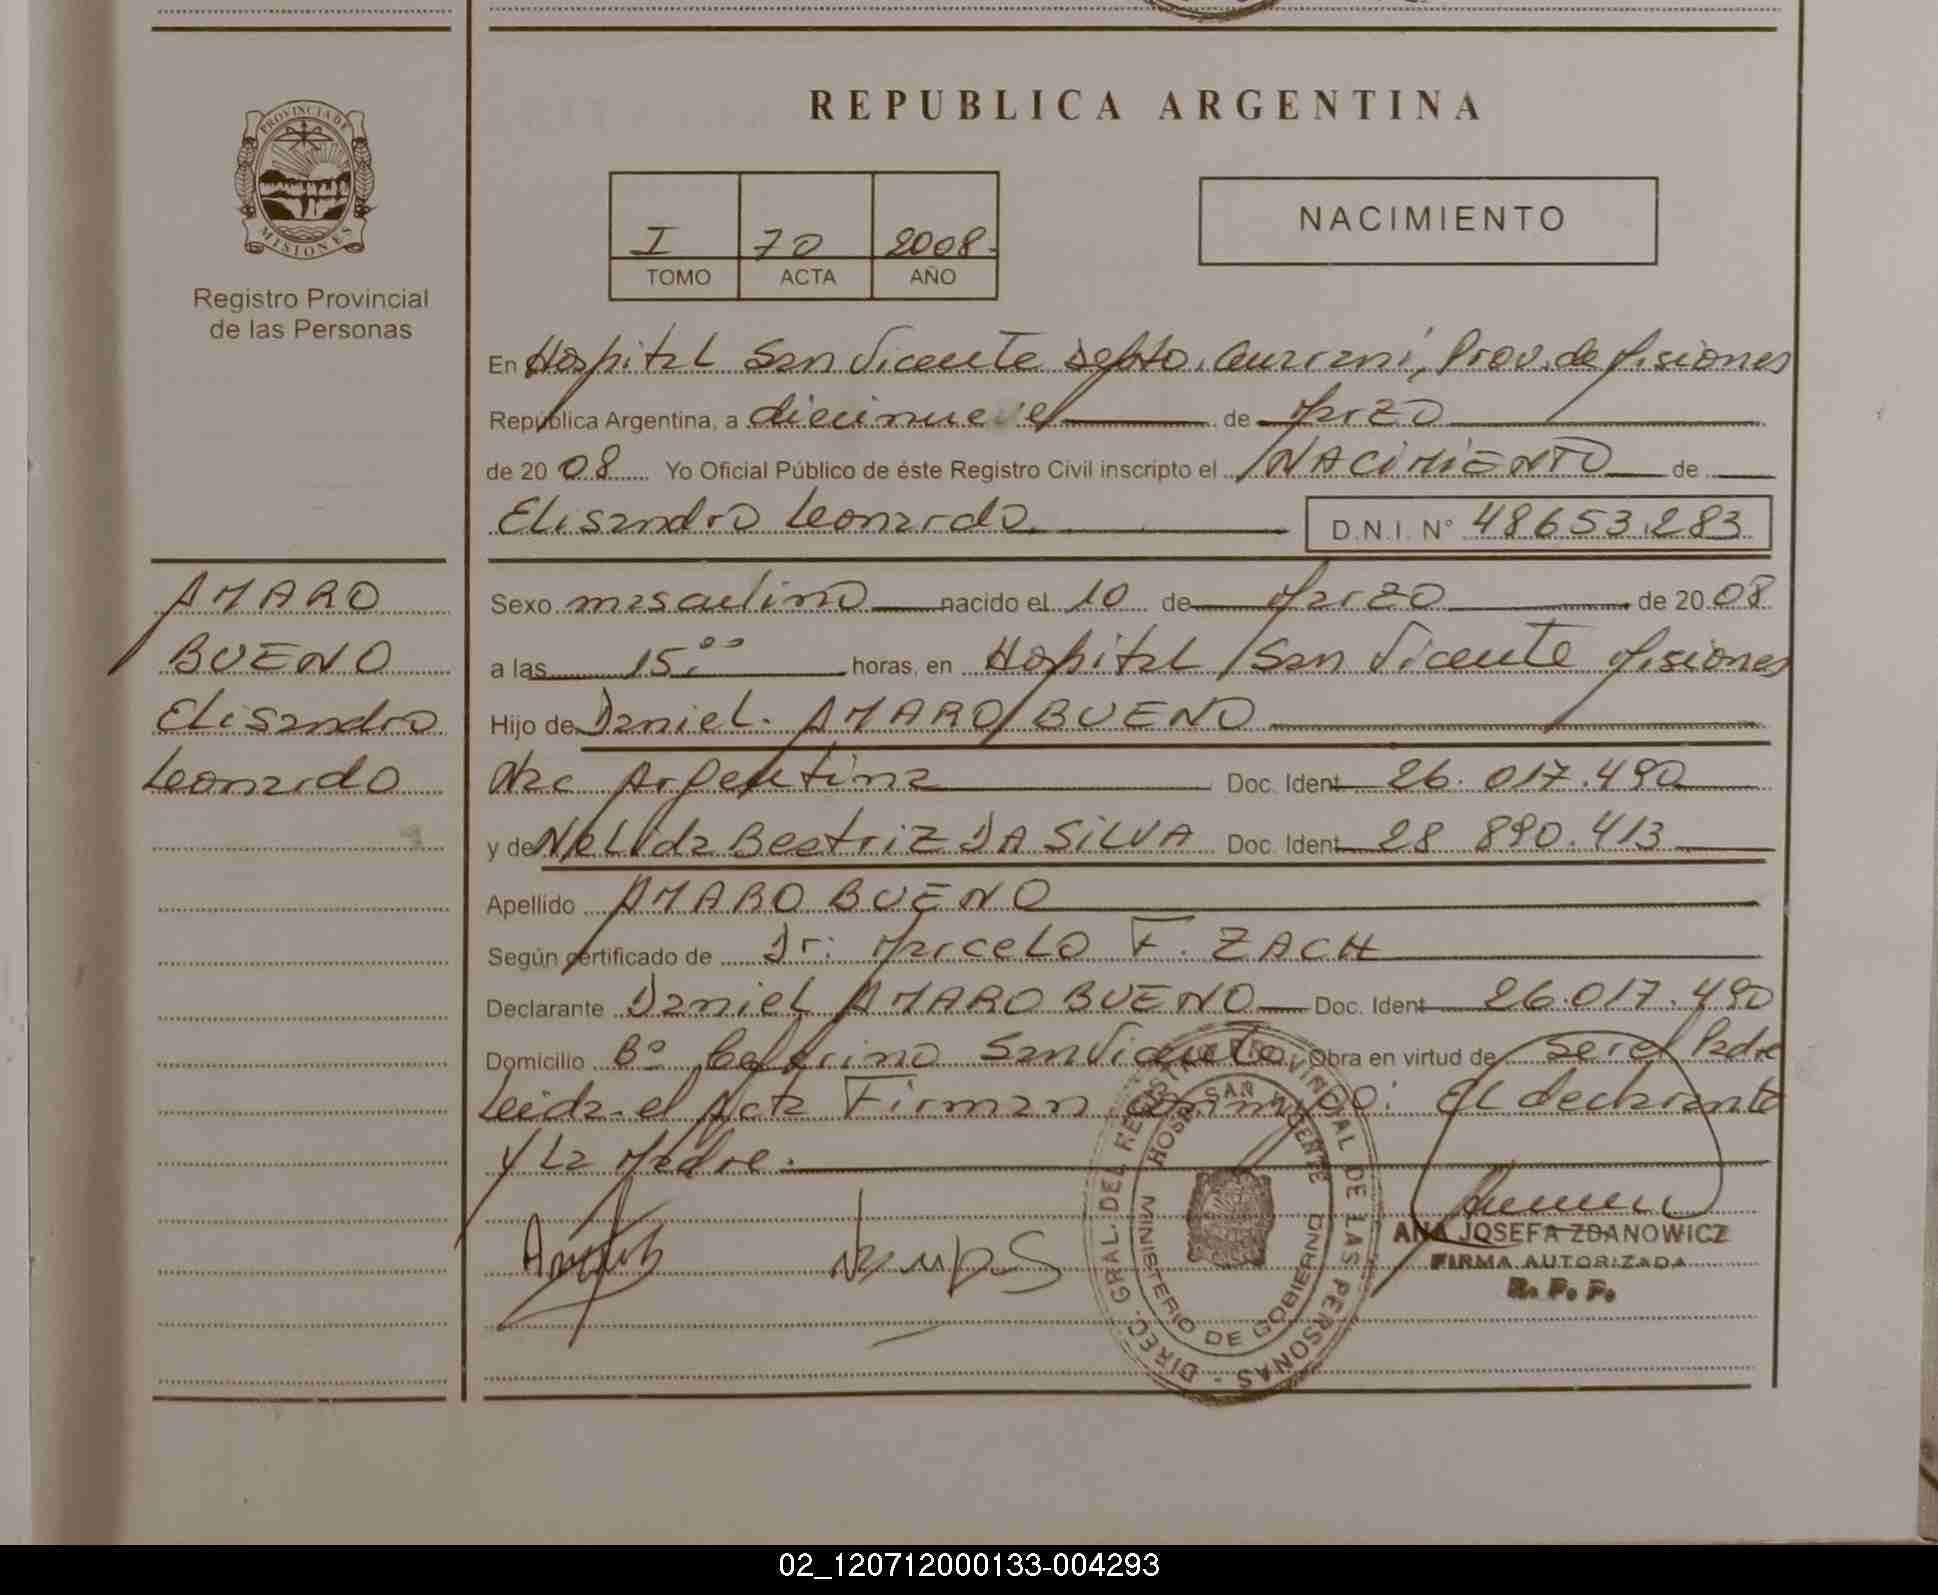 PROVINCIA DE
MISIONES
Registro Provincial
de las Personas
REPUBLICA ARGENTINA
I 70 2008
TOMO ACTA AÑO
NACIMIENTO
En Hospital San Vicente Depto. Guaraní, Prov. de Misiones
República Argentina, a diecinueve de Marzo
de 2008 Yo Oficial Público de éste Registro Civil inscripto el NACIMIENTO de
Elisandro Leonardo. D.N.I. N° 48653.283
AMARO
BUENO
Elisandro
Leonardo
Sexo masculino nacido el 10 de Marzo de 2008
a las 15:00 horas, en Hospital San Vicente Misiones
Hijo de Daniel. AMARO BUENO
Nac Argentina Doc. Ident. 26.017.490
y de Nelida Beatriz DA SILVA Doc. Ident. 28 890.413
Apellido AMARO BUENO
Según certificado de Dr: Marcelo F. ZACH
Declarante Daniel AMARO BUENO Doc. Ident. 26.017.490
Domicilio B° Ceferino San Vicente. Obra en virtud de ser el Padre
Leida el Acta Firman conmigo: El declarante
y La Madre.
DIREC. GRAL. DEL REGISTRO PROVINCIAL DE LAS PERSONAS -
HOSP. SAN VICENTE
MINISTERIO DE GOBIERNO
ANA JOSEFA ZDANOWICZ
FIRMA AUTORIZADA
R. P. P.
02_120712000133-004293